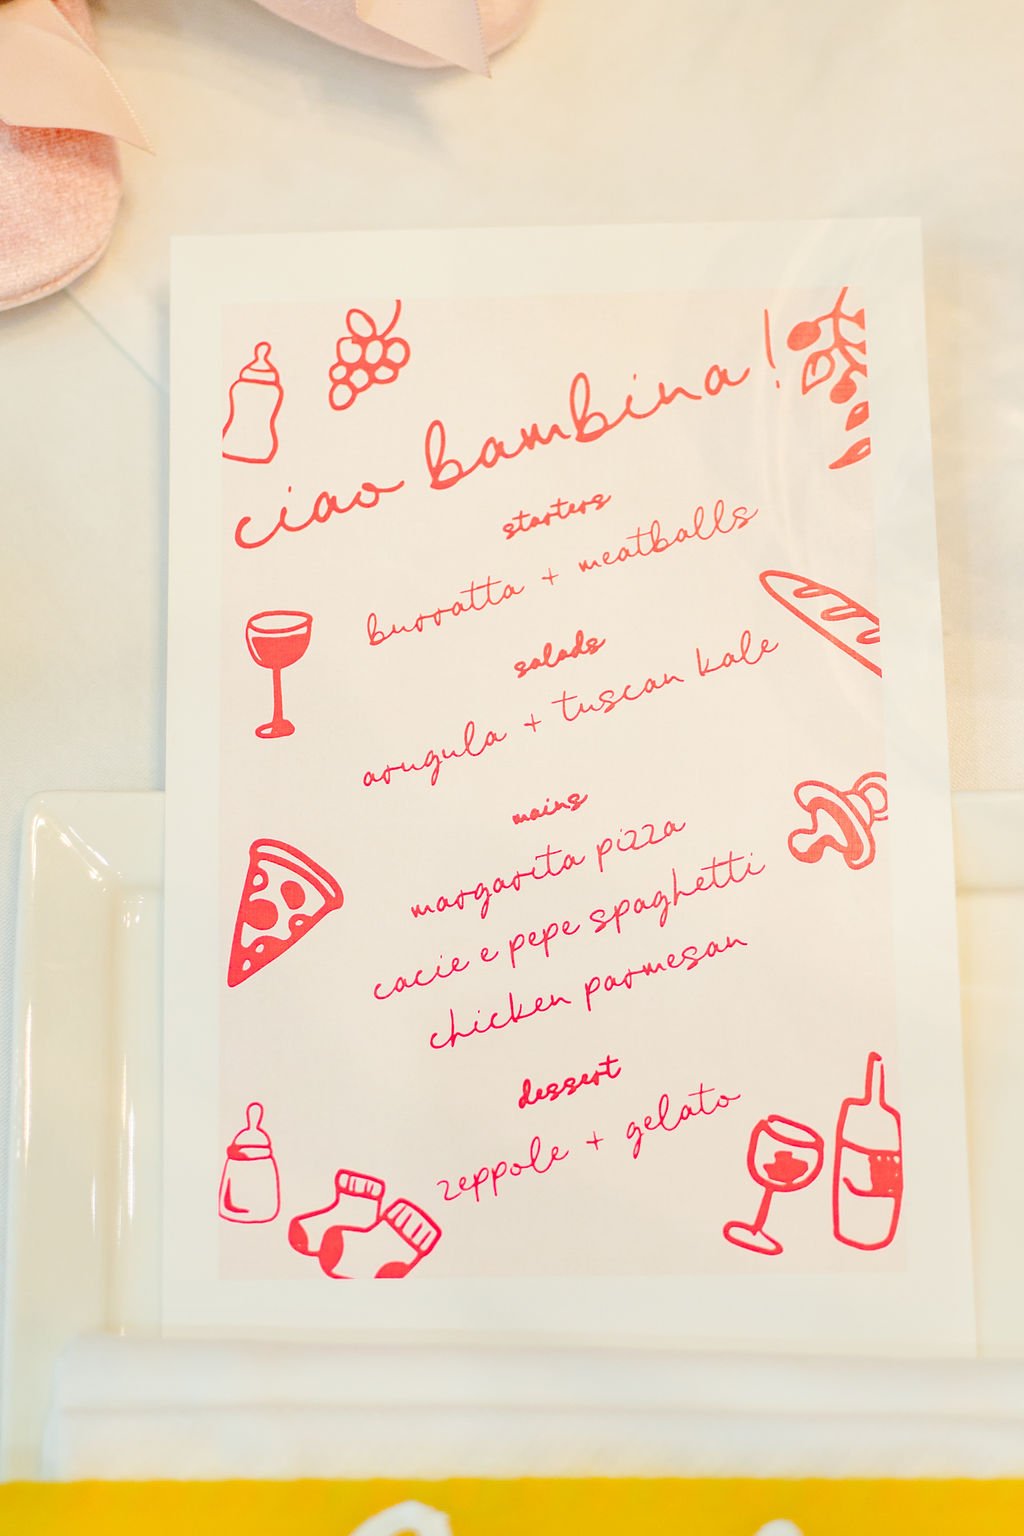 ciao bambina!
starters
burratta + meatballs
salads
arugula + tuscan kale
mains
margarita pizza
cacie e pepe spaghetti
chicken parmesan
dessert
zeppole + gelato